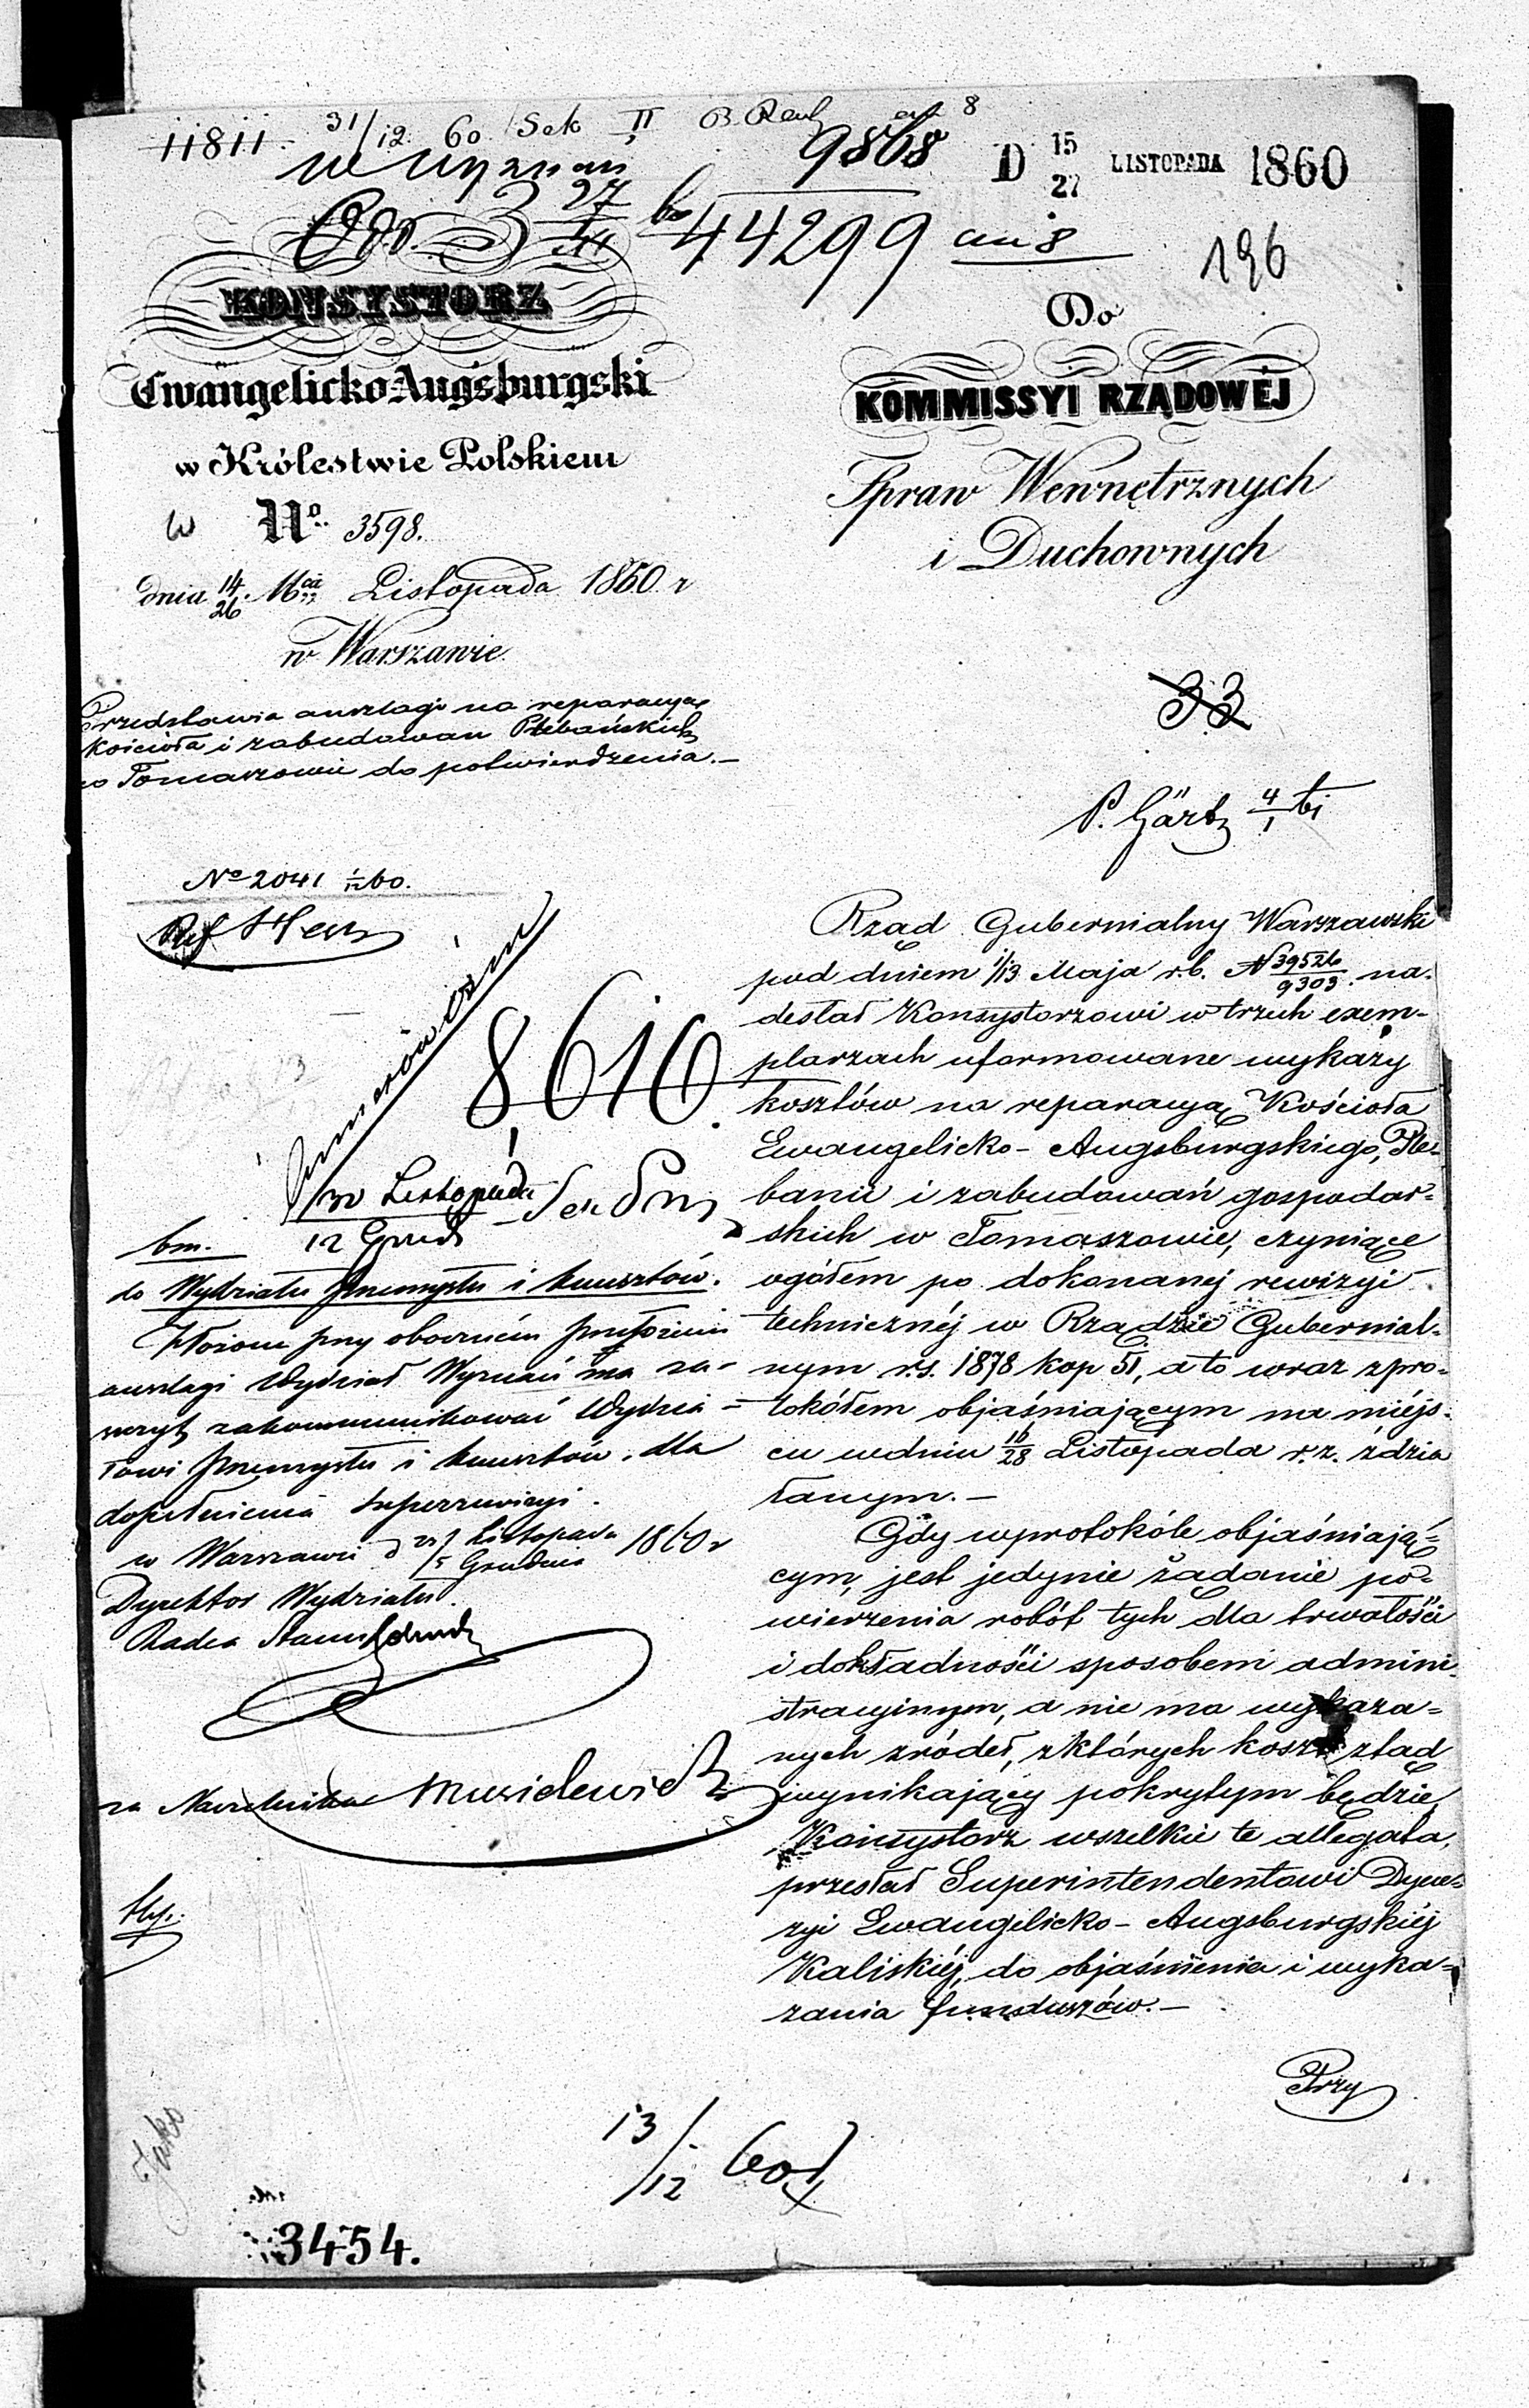 11811. 31/12 60 Sek II
9868
D 15/27 LISTOPADA 1860
44299
196
KONSYSTORZ
Ewangelicko-Augsburgski
w Królestwie Polskiem
No. 3598.
dnia 14/26 Listopada 1860 r
w Warszawie.
Przedstawia anszlagi na reparacyę
Kościoła i zabudowań Plebańskich
w Tomaszowie do potwierdzenia.—
No 2041 1/12 60.
8610
30 Listopada
12 Grud
bm.
do Wydziału Przemysłu i Kunsztów.
Złożone przy obecnem
anszlagi Wydział Wyznań ma za-
szczyt zakommunikować Wydzia=
łowi Przemysłu i Kunsztów, dla
dopełnienia superrewizyi.
w Warszawie d Listopada 1860 r
Grudnia
Dyrektor Wydziału.
Radca Stanu
za Naczelnika
13/12 60
3454.
Do
KOMMISSYI RZĄDOWÉJ
Spraw Wewnętrznych
i Duchownych
33
P. Gärtz 4/1
Rząd Gubernialny Warszawski
pod dniem 1/13 Maja r.b. N 39526/9303. na-
desłał Konsystorzowi w trzech exem-
plarzach uformowane wykazy
kosztów na reparacyą Kościoła
Ewangelicko-Augsburgskiego, Ple-
banii i zabudowań gospodar=
skich w Tomaszowie, czyniące
ogółem po dokonanej rewizyi
technicznéj w Rządzie Gubernial-
nym r.s. 1878 kop 51, a to wraz z pro-
tokółem objaśniającym na miéjs-
cu w dniu 16/28 Listopada r.z. zdzia
łanym.—
Gdy w protokóle objaśniają=
cym, jest jedynie żądanie po-
wierzenia robót tych dla trwałości
i dokładności sposobem admini-
stracyjnym, a nie ma wykaza=
nych źródeł, z których koszt ztąd
wynikający pokrytym będzie,
Konsystorz wszelkie te allegata,
przesłał Superintendentowi Dyece-
zyi Ewangelicko-Augsburgskiéj
Kaliskiéj, do objaśnienia i wyka=
zania funduszów.—
Przy